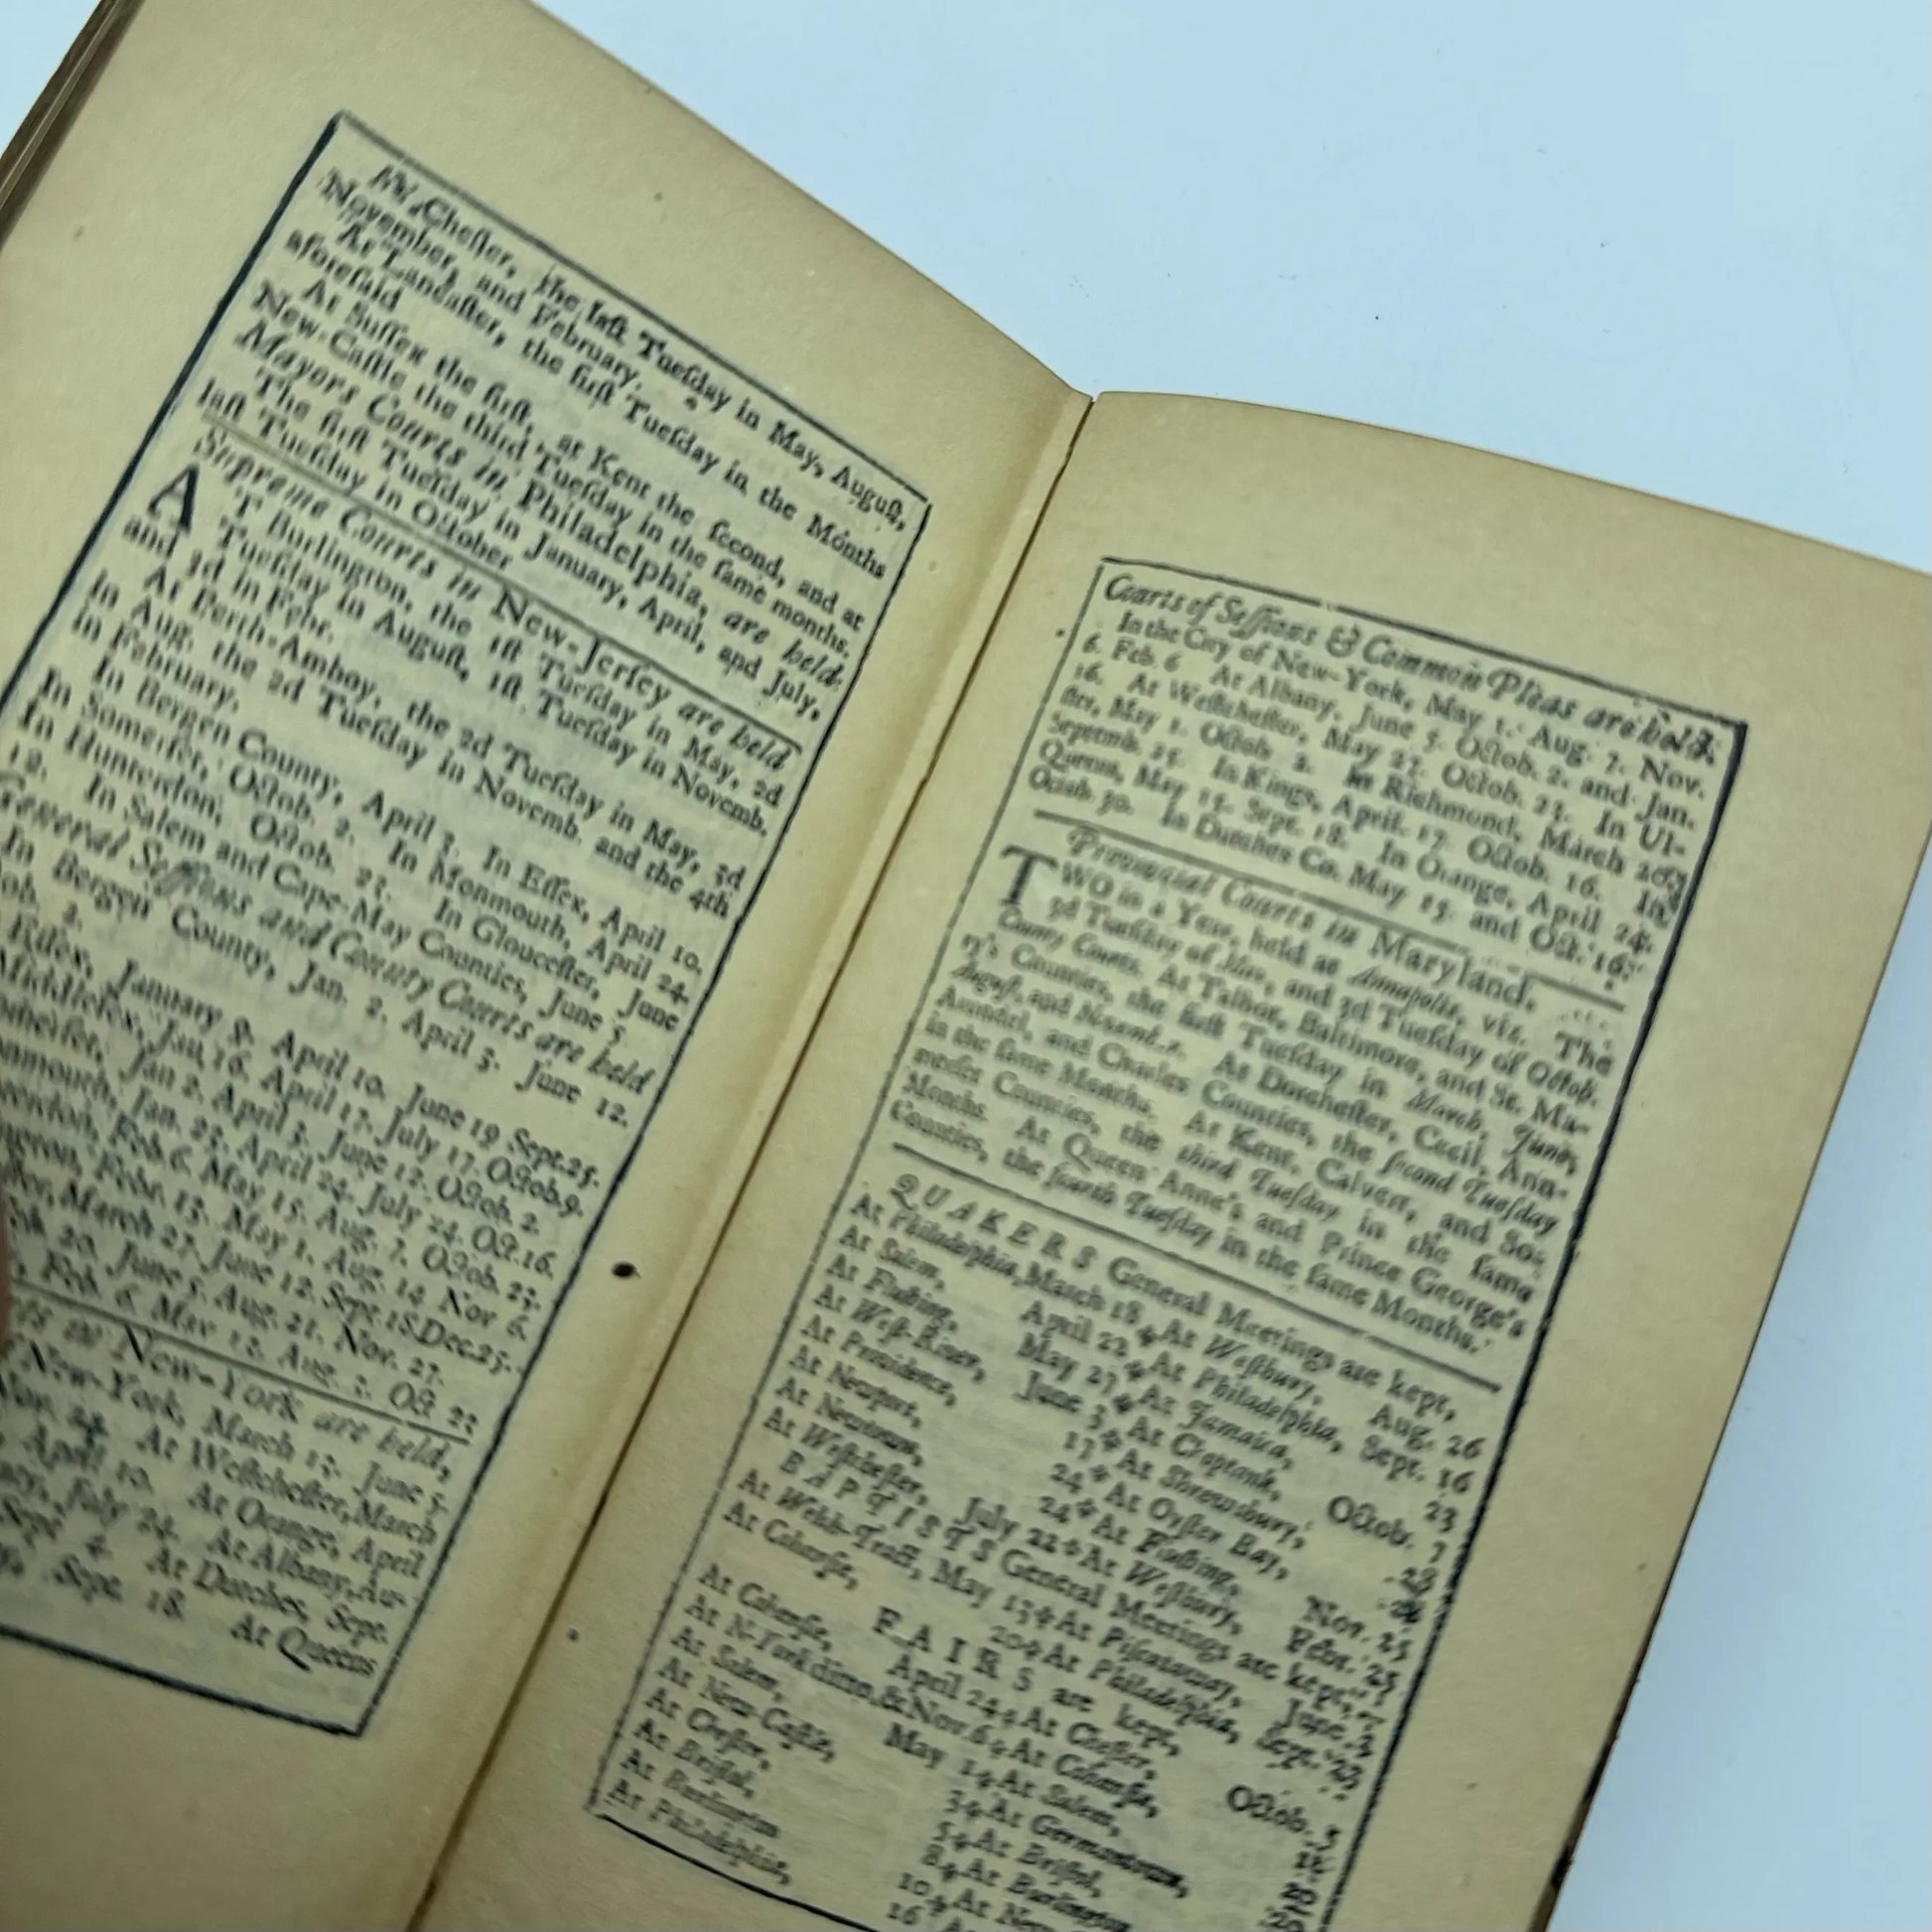 At Chester, the laſt Tueſday in May, Auguſt,
November, and February.
At Lancaſter, the firſt Tueſday in the Months
aforeſaid
At Suſſex the firſt, at Kent the ſecond, and at
New-Caſtle the third Tueſday in the ſame months.
Mayors Courts in Philadelphia, are held.
The firſt Tueſday in January, April, and July,
laſt Tueſday in October
Supreme Courts in New-Jerſey are held
AT Burlington, the 1ſt Tueſday in May, 2d
Tueſday in Auguſt, 1ſt. Tueſday in Novemb.
and 3d in Febr.
At Perth-Amboy, the 2d Tueſday in May, 3d
in Aug. the 2d Tueſday in Novemb. and the 4th
in February.
In Bergen County, April 3. In Eſſex, April 10.
In Somerſet, Octob. 2. In Monmouth, April 24.
In Hunterdon, Octob. 23. In Glouceſter, June
12. In Salem and Cape-May Counties, June 5.
General Seſſions and County Courts are held
In Bergen County, Jan. 2. April 3. June 12.
ob. 2.
Eſſex, January 9. April 10. June 19 Sept.25.
Middleſex, Jan. 16. April 17. July 17. Octob.9.
Jan 2. April 3. June 12. Octob. 2.
Jan. 23. April 24. July 24. Oct.16.
Feb. 6. May 15. Aug. 7. Octob. 23.
Febr. 13. May 1. Aug. 14 Nov 6.
March 27. June 12. Sept. 18 Dec.25.
20. June 5. Aug. 21. Nov. 27.
Feb. 6. May 12. Aug. Oct. 23
in New-York are held,
New-York, March 13. June 5.
At Weſtcheſter, March
April 10. At Orange, April
July 24. At Albany, Au-
Sept 4. At Dutches, Sept.
Sept. 18. At Queens
Courts of Seſſions & Common Pleas are held.
In the City of New-York, May 1. Aug. 7. Nov.
6. Feb. 6 At Albany, June 5. Octob. 2. and Jan.
16. At Weſtcheſter, May 27. Octob. 23. In Ul-
ſter, May 1. Octob. 2. In Richmond, March 20.
Septemb. 25. In Kings, April. 17. Octob. 16. In
Queens, May 15. Sept. 18. In Orange, April 24.
Octob. 30. In Dutches Co. May 15. and Oct. 16.
Provincial Courts in Maryland.
TWO in a Year, held at Annapolis, viz. The
3d Tueſday of and 3d Tueſday of Octob.
County Courts. At Talbot, Baltimore, and St. Ma-
ry's Counties, the firſt Tueſday in March, June,
Auguſt, and At Dorcheſter, Cecil, Ann-
Arundel, and Charles Counties, the ſecond Tueſday
in the ſame Months. At Kent, Calvert, and So-
merſet Counties, the third Tueſday in the ſame
Months. At Queen Anne's and Prince George's
Counties, the fourth Tueſday in the ſame Months.
QUAKERS General Meetings are kept,
At Philadelphia, March 18 At Weſtbury, Aug. 26
At Salem, April 22 At Philadelphia, Sept. 16
At Fluſhing, May 27 At Jamaica, 23
At Weſt-River, June 3 At Choptank, Octob. 7
At Providence, 17 At Shrewsbury, 28
At Newport, 24 At Oyſter Bay,
At Newtown, 24 At Fluſhing, Nov. 25
At Weſtcheſter, July 22 At Weſtbury, Febr. 25
BAPTISTS General Meetings are kept,
At Welsh-Tract, May 13 At Piſcataway, June
At Cohanſie, 20 At Philadelphia, Sept.
FAIRS are kept,
At Cohanſie, April 24 At Cheſter, Octob. 5
At N-York ditto, & Nov. 6 At Cohanſie,
At Salem, May 1 At Salem, 20
At New-Caſtle, 3 At Germantown,
At Cheſter, 5 At Briſtol,
At Briſtol, 8 At Burlington
At Burlington 10 At New
At Philadelphia, 16